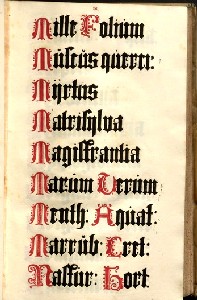 Mille Folium
Muscus querci:
Myrtus
Matrisylva
Magistrantia
Marum Verum
Menth: Aquat:
Marrub: Cret:
Nastur: Hort